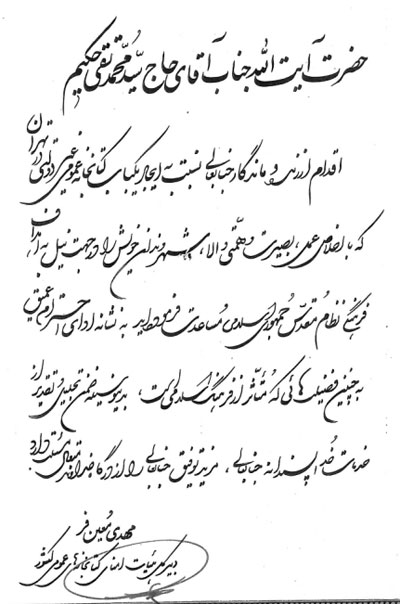 حضرت آیت الله جناب آقای حاج سید محمد تقی حکیم
اقدام ارزنده و ماندگار جنابعالی نسبت به ایجاد یکباب کتابخانه عمومی غیر دولتی در تهران
که با اخلاص عمل، بصیرت و همتی والا، شهروندان خویش را در جهت نیل به اهداف
فرهنگی نظام مقدس جمهوری اسلامی مساعدت فرموده‌اید به نشانه ادای احترام عمیق
به چنین فضیلت هائی که متأثر از فرهنگ اسلامی است، بدینوسیله ضمن تجلیل و تقدیر از
خدمات خدا پسندانه جنابعالی، مزید توفیق جنابعالی را از درگاه خداوند متعال مسئلت دارد.
مهدی معین فر
دبیر کل هیأت امنای کتابخانه های عمومی کشور